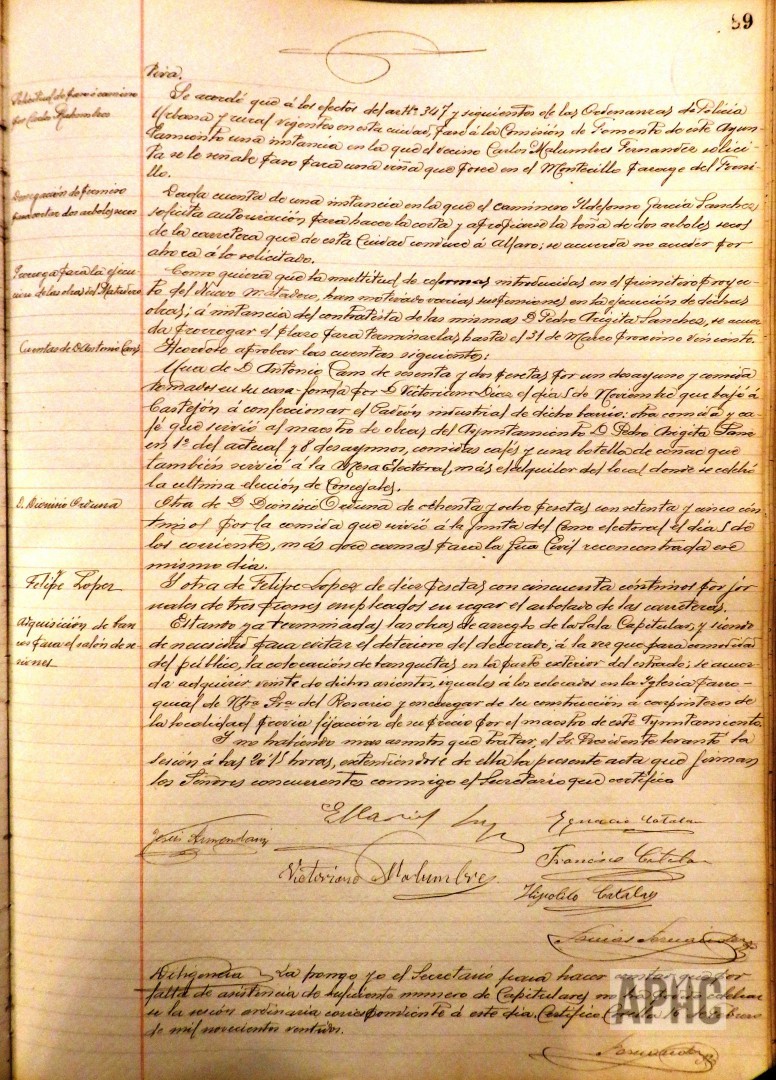 89
Solicitud de paso à camino
por Carlos Malumbres
Se acordó que á los efectos del artº 347 y siguientes de las Ordenanzas de Policia
Urbana y rural vigentes en esta ciudad, pase á la Comisión de Fomento de este Ayun-
tamiento una instancia en la que el vecino Carlos Malumbres Fernandez solici-
ta se le señale paso para una viña que posee en el Montecillo paraje del
Denegación de permiso
para cortar dos arboles secos
Dada cuenta de una instancia en la que el caminero Ildefonso Garcia Sanchez
solicita autorización para hacer la corta y apropiarse la leña de dos arboles secos
de la carretera que de esta Ciudad conduce á Alfaro; se acuerda no acceder por
ahora á lo solicitado.
Prorroga para la ejecu-
cion de las obras del Matadero
Como quiera que la multitud de reformas introducidas en el primitivo proyec-
to del Nuevo Matadero, han motivado varias suspensiones en la ejecución de dichas
obras; á instancia del contratista de las mismas D. Pedro Arigita Sanchez, se acuer-
da prorrogar el plazo para terminarlas hasta el 31 de Marzo proximo viniente.
Cuentas de D. Antonio Cans
Acordose aprobar las cuentas siguientes:
Una de D. Antonio Cans de sesenta y dos pesetas por un desayuno y comida
tomados en su casa-fonda por D. Victoriano Diez el dia 5 de Noviembre que bajó á
Castejón á confeccionar el Padrón industrial de dicho barrio: otra comida y ca-
fé que sirvió al maestro de obras del Ayuntamiento D. Pedro Arigita
en 1º del actual y 8 desayunos, comidas cafés y una botella de coñac que
tambien sirvió á la Mesa Electoral, más el alquiler del local donde se celebró
la ultima elección de Concejales.
D. Dionisio Orduna
Otra de D. Dionisio Orduna de ochenta y ocho pesetas con setenta y cinco cén-
timos por la comida que sirvió á la Junta del Censo electoral el dia 5 de
los corrientes, más doce cenas para la Gua. Civil reconcentrada ese
mismo dia.
Felipe Lopez
Y otra de Felipe Lopez de diez pesetas con cincuenta céntimos por jor-
nales de tres peones empleados en regar el arbolado de las carreteras.
Adquisición de ban-
cos para el salón de se-
siones
Estando ya terminadas las obras de arreglo de la Sala Capitular, y siendo
de necesidad para evitar el deterioro del decorado, á la vez que para comodidad
del público, la colocación de banquetas en la parte exterior del estrado; se acuer-
da adquirir veinte de dichos asientos, iguales á los colocados en la Iglesia parro-
quial de Ntra. Sra. del Rosario y encargar de su construcción á carpinteros de
la localidad previa fijación de su precio por el maestro de este Ayuntamiento.
Y no habiendo mas asuntos que tratar, el Sr. Presidente levantó la
sesión á las 20'15 horas, extendiendose de ella la presente acta que firman
los Señores concurrentes conmigo el Secretario que certifico
Jesús Armendariz
Ignacio Catalan
Francisco Catalan
Victoriano Malumbres
Hipolito Catalan
Diligencia La pongo yo el Secretario para hacer constar que por
falta de asistencia de suficiente numero de Capitulares no celebrar-
se la sesión ordinaria correspondiente á este dia. Certifico Corella Febrero
de mil novecientos veintidos.
APHC